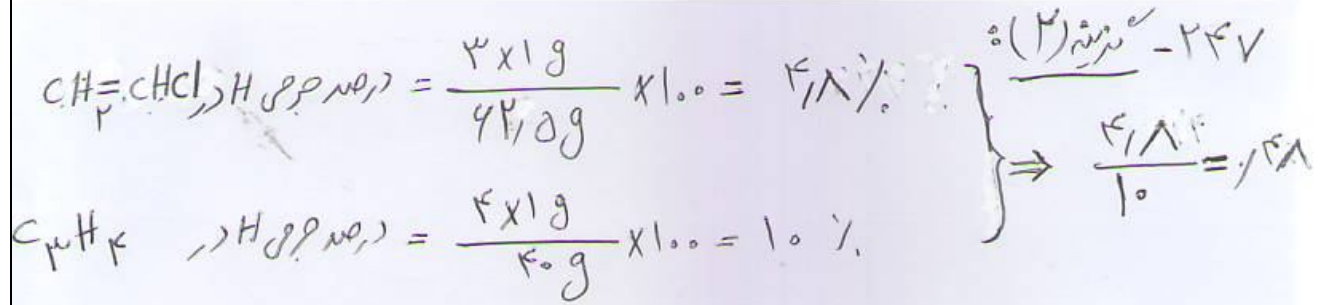 ۲۴۷- گزینه (۲):
درصد جرمی H در CH₂=CHCl = (۳×۱ g / ۶۲٫۵ g) ×۱۰۰ = ۴٫۸٪
درصد جرمی H در C₃H₄ = (۴×۱ g / ۴۰ g) ×۱۰۰ = ۱۰٪
⇒ ۴٫۸ / ۱۰ = ٫۴۸